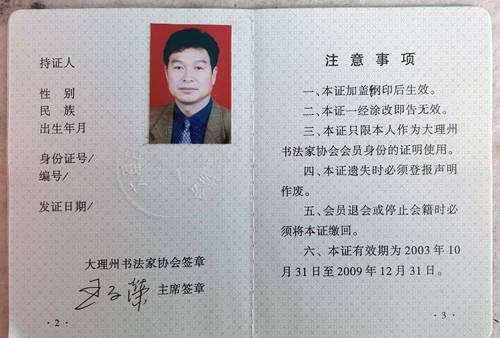 持证人
性 别
民 族
出生年月
身份证号/
编号/
发证日期/
大理州书法家协会签章
主席签章
· 2 ·
注 意 事 项
一、本证加盖钢印后生效。
二、本证一经涂改即告无效。
三、本证只限本人作为大理州
书法家协会会员身份的证明使用。
四、本证遗失时必须登报声明
作废。
五、会员退会或停止会籍时必
须将本证缴回。
六、本证有效期为 2003 年 10
月 31 日至 2009 年 12 月 31 日。
· 3 ·